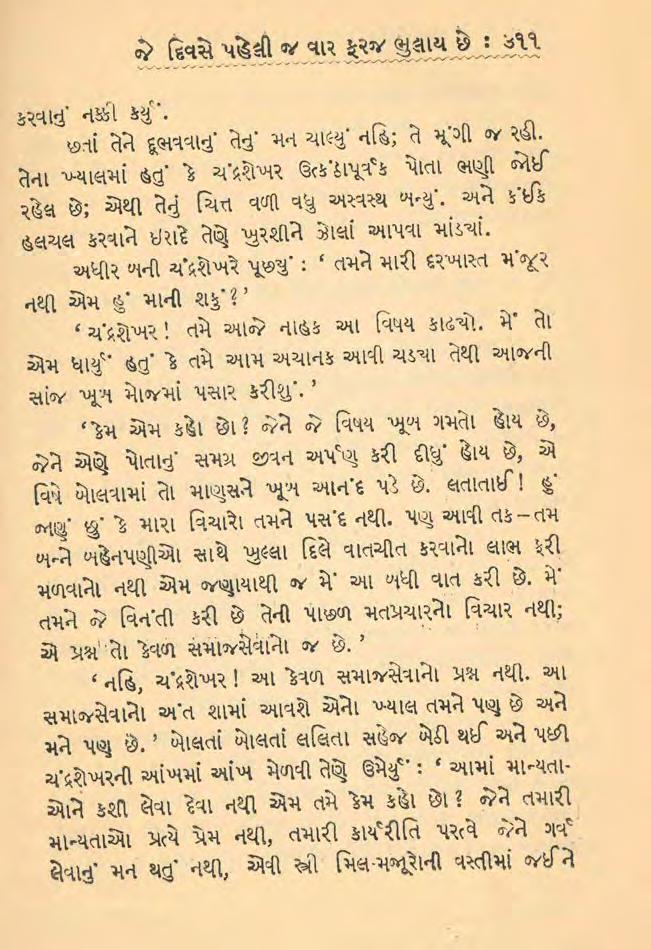 જે દિવસે પહેલી જ વાર ફરજ ભુલાય છે : ૩૧૧
કરવાનું નક્કી કર્યું.
છતાં તેને દૂભવવાનું તેનું મન ચાલ્યું નહિ; તે મૂંગી જ રહી.
તેના ખ્યાલમાં હતું કે ચંદ્રશેખર ઉત્કંઠાપૂર્વક પોતા ભણી જોઈ
રહેલ છે; એથી તેનું ચિત્ત વળી વધુ અસ્વસ્થ બન્યું. અને કંઈક
હલચલ કરવાને ઇરાદે તેણે ખુરશીને ઝોલાં આપવા માંડ્યાં.
અધીર બની ચંદ્રશેખરે પૂછ્યું : ‘ તમને મારી દરખાસ્ત મંજૂર
નથી એમ હું માની શકું?’
‘ ચંદ્રશેખર! તમે આજે નાહક આ વિષય કાઢ્યો. મેં તો
એમ ધાર્યું હતું કે તમે આમ અચાનક આવી ચડ્યા તેથી આજની
સાંજ ખૂબ મોજમાં પસાર કરીશું.’
‘કેમ એમ કહો છો? જેને જે વિષય ખૂબ ગમતો હોય છે,
જેને એણે પોતાનું સમગ્ર જીવન અર્પણ કરી દીધું હોય છે, એ
વિષે બોલવામાં તો માણસને ખૂબ આનંદ પડે છે. લતાતાઈ! હું
જાણું છું કે મારા વિચારો તમને પસંદ નથી. પણ આવી તક–તમ
બન્ને બહેનપણીઓ સાથે ખુલ્લા દિલે વાતચીત કરવાનો લાભ ફરી
મળવાનો નથી એમ જણાયાથી જ મેં આ બધી વાત કરી છે. મેં
તમને જે વિનંતી કરી છે તેની પાછળ મતપ્રચારનો વિચાર નથી;
એ પ્રશ્ન તો કેવળ સમાજસેવાનો જ છે.’
‘ નહિ, ચંદ્રશેખર! આ કેવળ સમાજસેવાનો પ્રશ્ન નથી. આ
સમાજસેવાનો અંત શામાં આવશે એનો ખ્યાલ તમને પણ છે અને
મને પણ છે.’ બોલતાં બોલતાં લલિતા સહેજ બેઠી થઈ અને પછી
ચંદ્રશેખરની આંખમાં આંખ મેળવી તેણે ઉમેર્યું : ‘ આમાં માન્યતા-
ઓને કશી લેવા દેવા નથી એમ તમે કેમ કહો છો? જેને તમારી
માન્યતાઓ પ્રત્યે પ્રેમ નથી, તમારી કાર્યરીતિ પરત્વે જેને ગર્વ
લેવાનું મન થતું નથી, એવી સ્ત્રી મિલ-મજૂરોની વસ્તીમાં જઈને